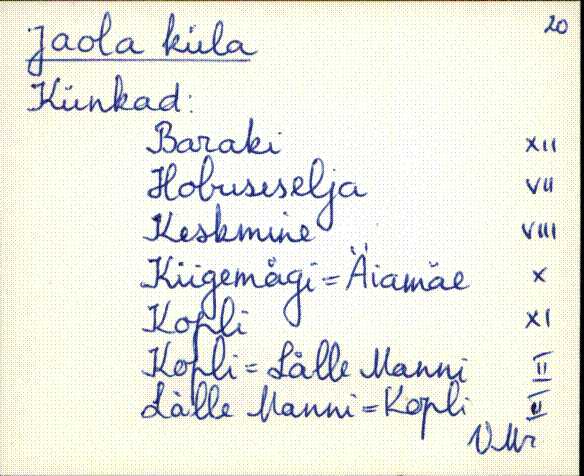 20
Jaola küla
Künkad:
Baraki XII
Hobuseselja VII
Keskmine VIII
Kiigemägi = Äiamäe X
Kopli XI
Kopli = Lälle Manni II
Lälle Manni = Kopli II